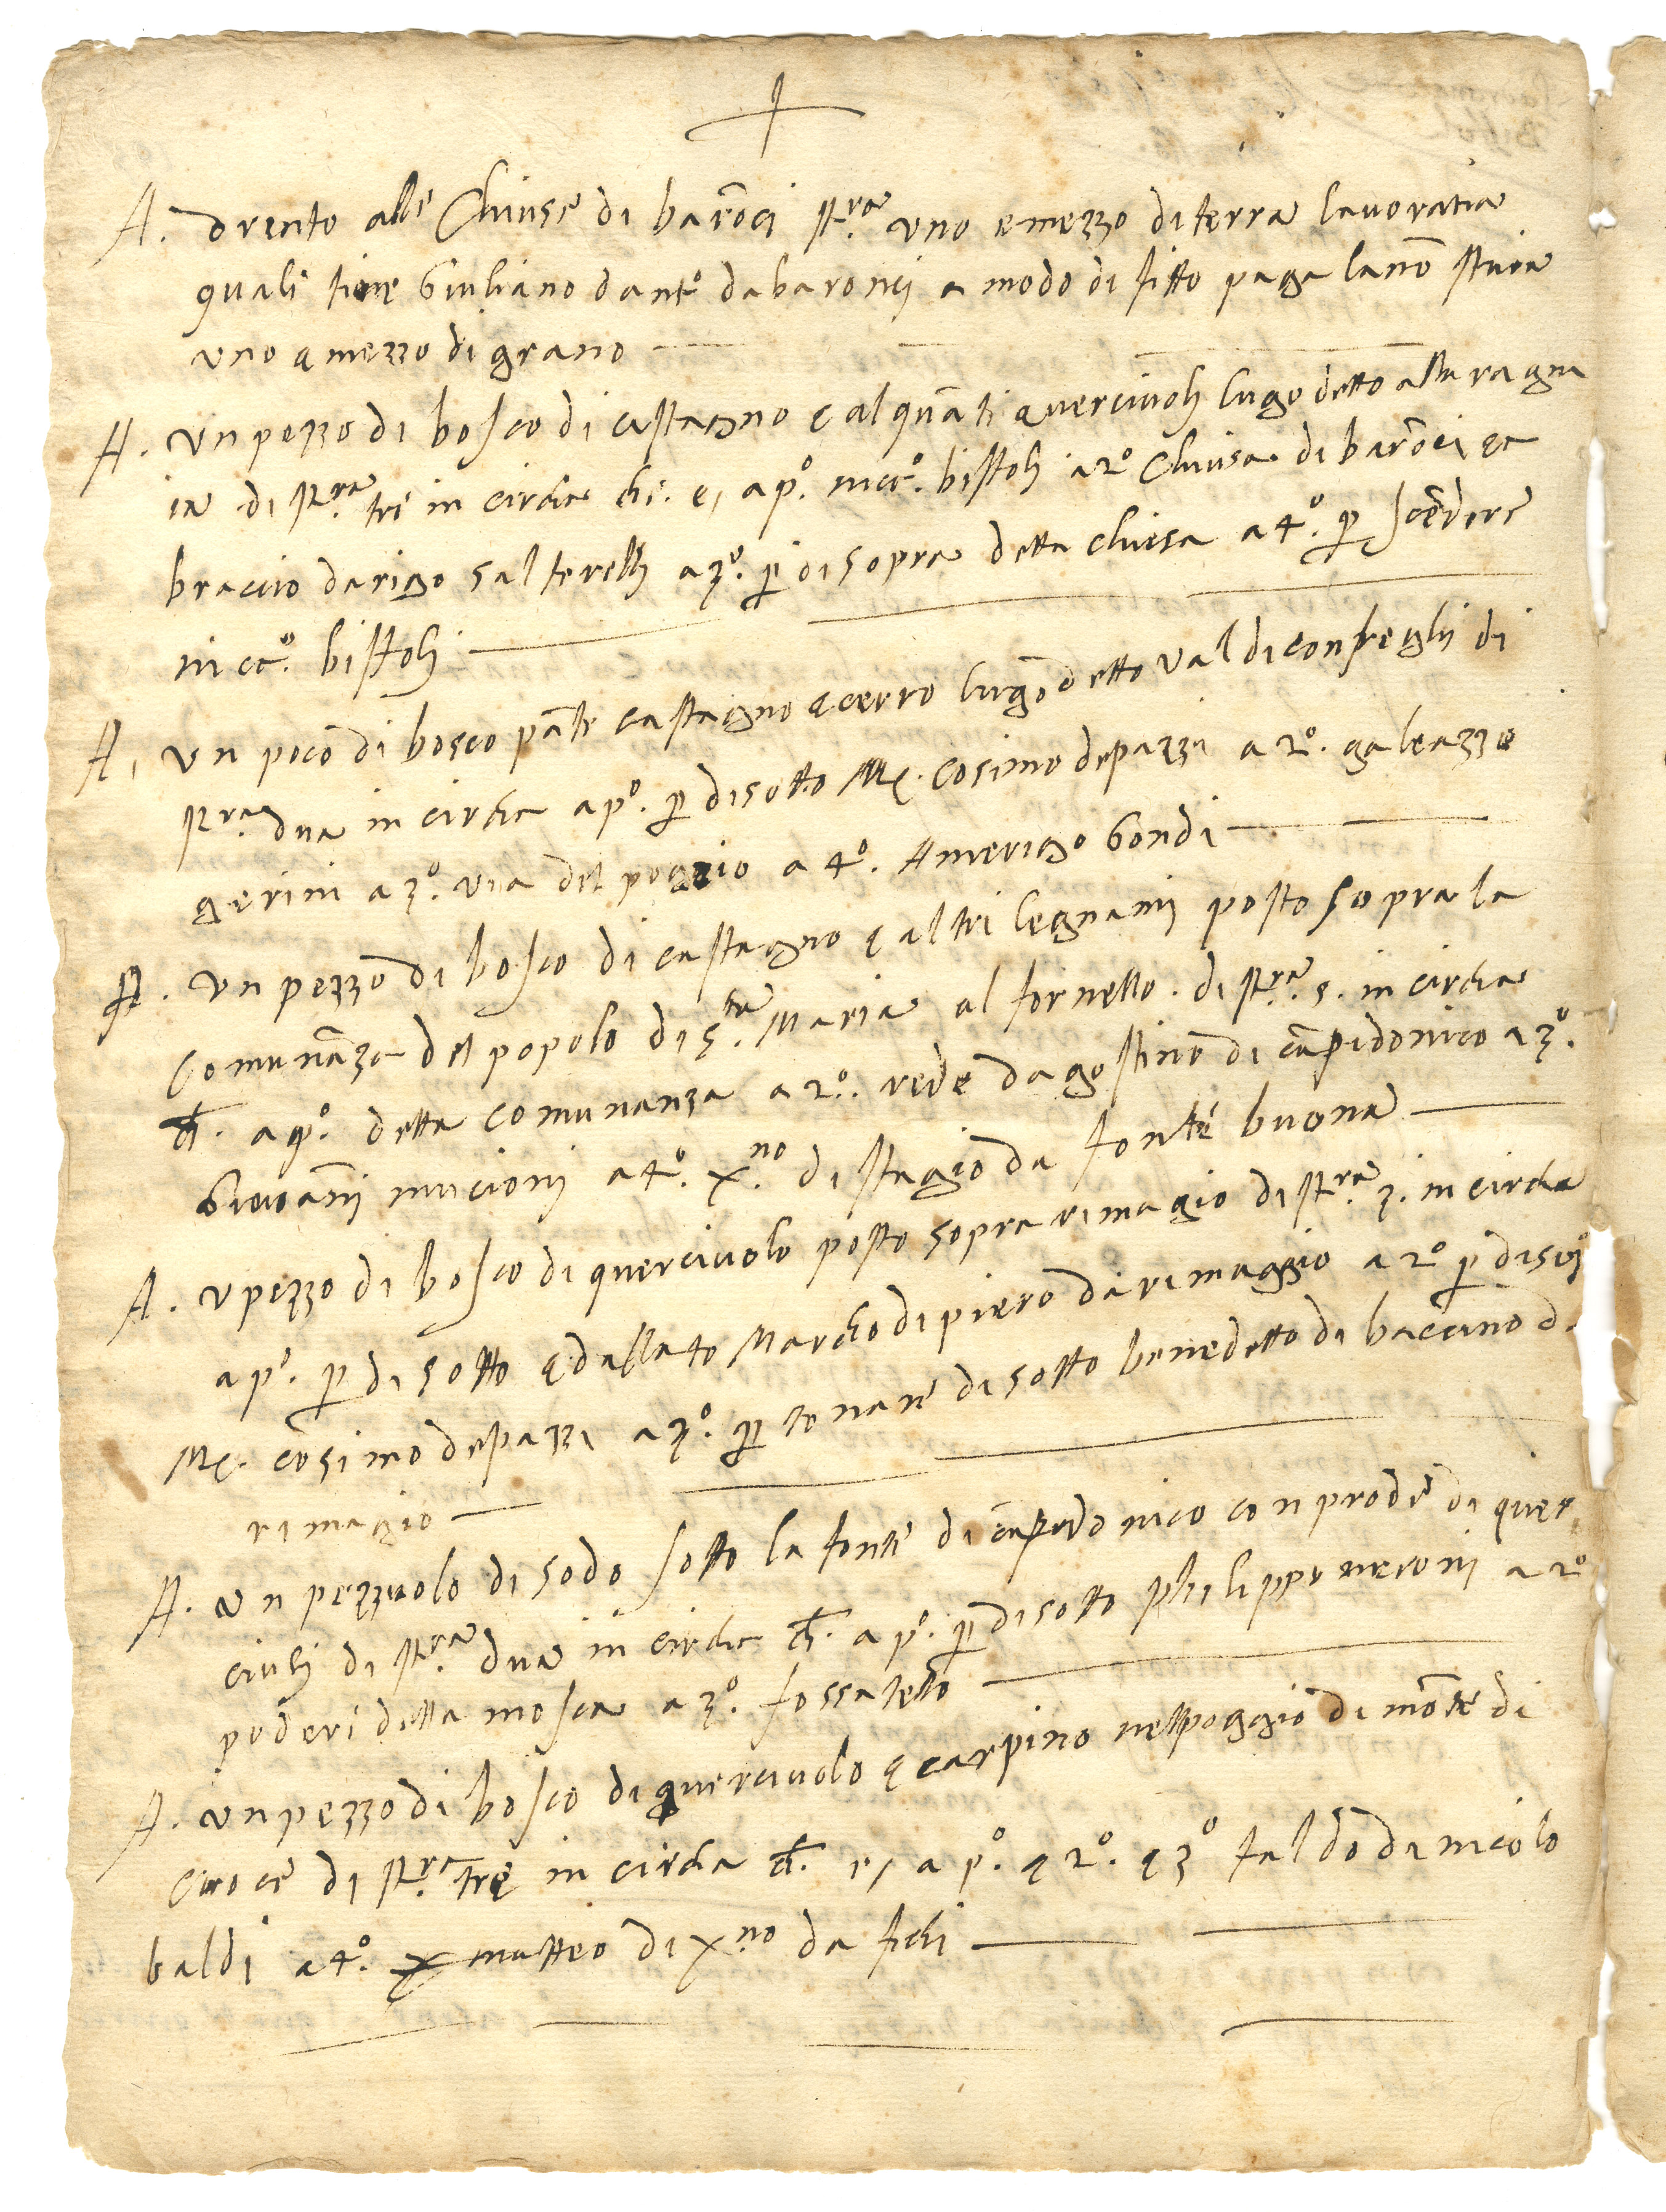 A. drento alle Chiuse di barōci st.ra uno e mezzo di terra lavoratia
quali tiene Giuliano dant.o da baronci a modo di fitto paga lanō staia
uno e mezzo di grano
A. un pezzo di bosco di castagno e alquāti querciuoli lugo detto alla ragna
ia di st.ra tre in circha ch. e, a p.o nicc.o bistoli a 2.o Chiesa di barōci et
braccio darigo salterelli a 3.o p di sopra detta chiesa a 4.o p scēdere
nicc.o bistoli
A. un pocō di bosco pāte castagno e cerro lugo detto val di confregli di
st.ra dua in circha a p.o p di sotto M. cosimo depazzi a 2.o galeazzo
gerini a 3.o via del poggio a 4.o Amerigo Gondi
A. un pezzo di bosco di castagno e altri legnami posto sopra la
Comunāza del popolo di S.ta Maria al fornello. di st.ra 5. in circha
ch. a p.o detta comunanza a 2.o rede dagostino di cāpidonico a 3.o
Giovāni mucioni a 4.o x.no di stagio da fonte buona
A. u pezzo di bosco di querciuolo posto sopra rimagio di st.ra 3. in circha
a p.o p di sotto e dallato Marcho di piero da rimaggio a 2.o p di sop.o
M. cosimo depazzi a 3.o p tonare di sotto benedetto di baccino d.
rimagio
A. un pezzuolo di sodo sotto la fonte di cāpidonico con prode di quer
ciuoli di st.ra dua in circha ch. a p.o p di sotto philippo neroni a 2.o
poderi della mosca a 3.o fossatello
A. un pezzo di bosco di querciuolo e carpino nel poggio di mōte di
croce di st.ra tre in circha ch. e, a p.o e 2.o e 3.o faldo di nicolo
baldi a 4.o matteo di x.no da fichi